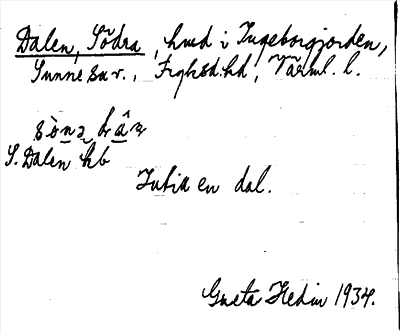 Dalen, Södra, hmd i Ingeborgjorden,
Sunne sn., Fryksd. hd, Värml. l.
S. Dalen hb
Intill en dal.
Greta Hedin 1934.